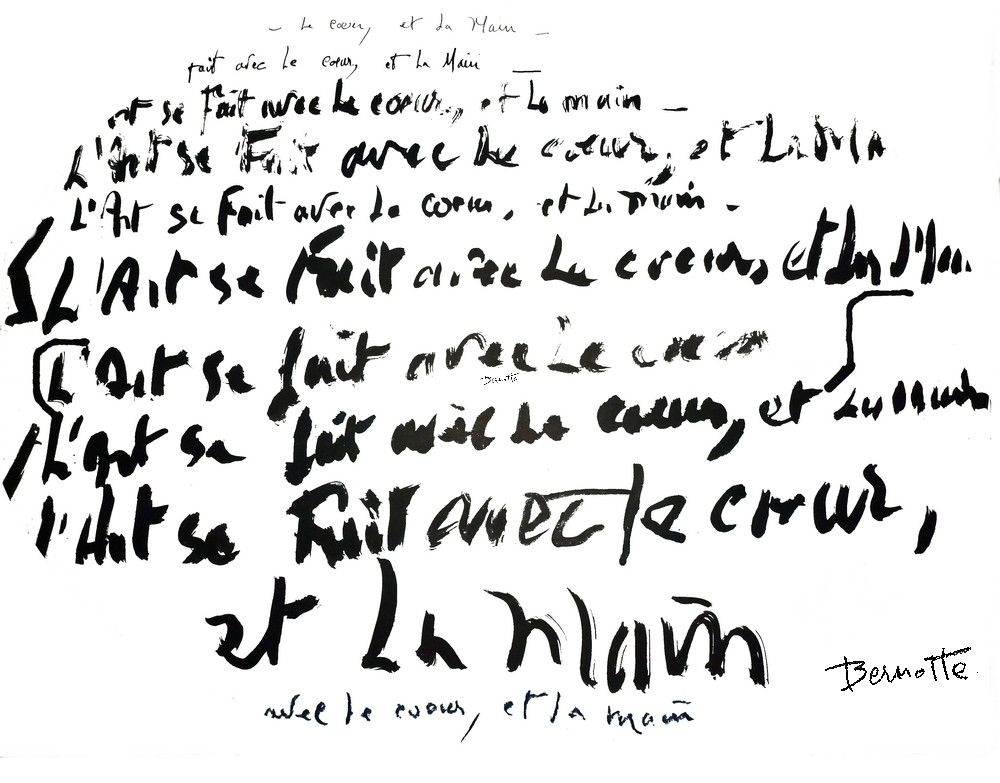 - Le coeur, et La Main -
fait avec Le coeur, et La Main
art se Fait avec Le coeur, et La main -
L'Art se Fait avec Le coeur, et La Ma
L'Art se Fait avec Le coeur, et La main -
L'Art se Fait avec Le coeur, et La Ma
L'Art se fait avec Le coeur
Bernotte
L'art se fait avec Le coeur, et La main
l'Art se Fait avec le coeur,
et La Main
Bernotte
avec le coeur, et la main